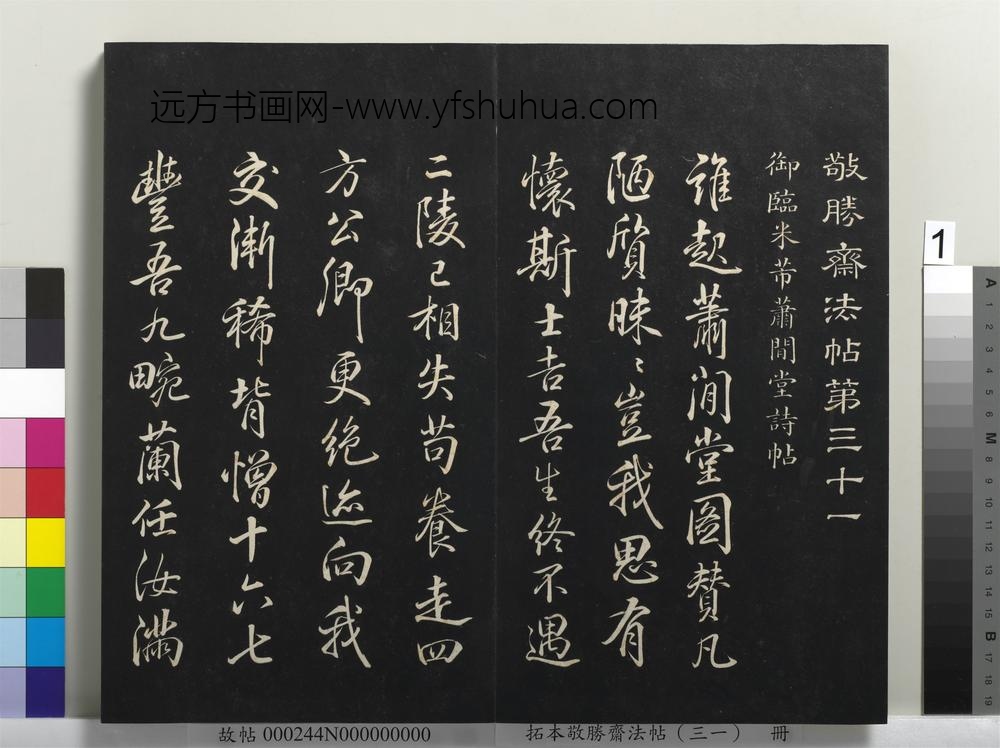 远方书画网-www.yfshuhua.com
敬勝齋法帖第三十一
御臨米芾蕭閒堂詩帖
誰起蕭閒堂圖贊凡
陋質昧〻豈我思有
懷斯士吉吾生終不遇
二陵已相失苟養走四
方公卿更絕迹向我
交漸稀背憎十六七
豐吾九畹蘭任汝滿
1
A 1 2 3 4 5 6 M 8 9 10 11 12 13 14 15 B 17 18 19
故帖 000244N000000000
拓本敬勝齋法帖（三一） 冊